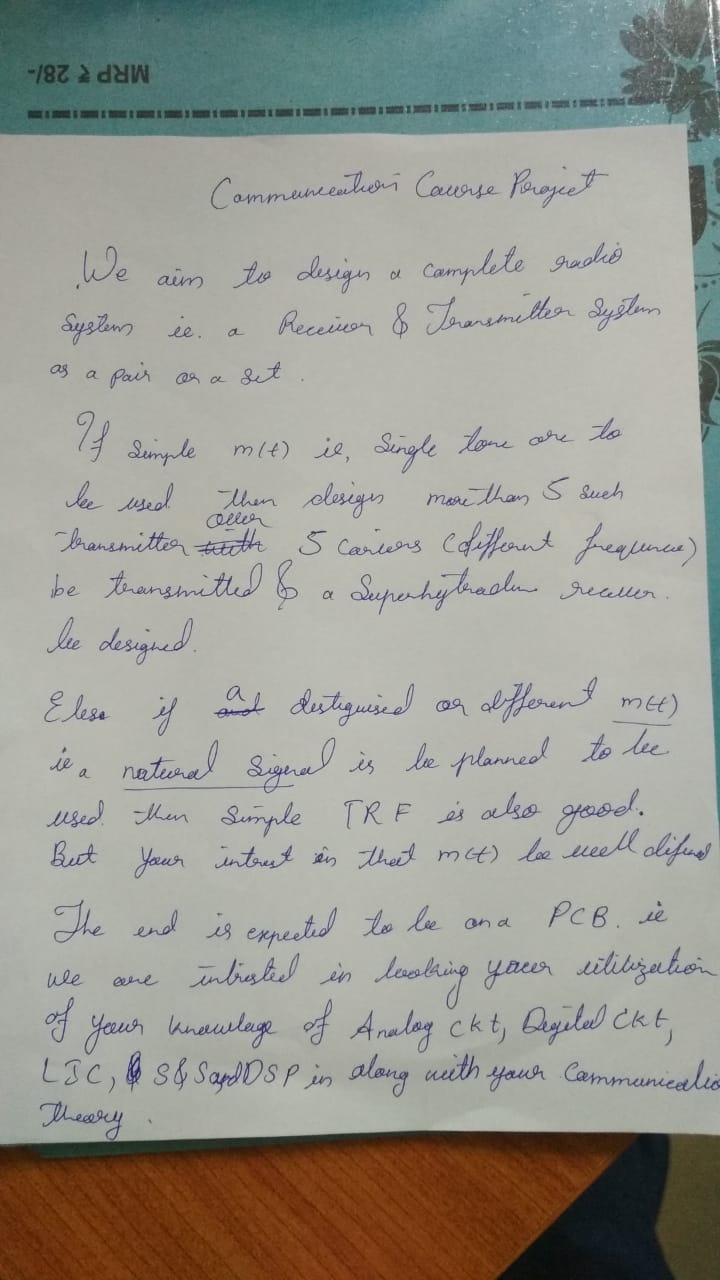 MRP ₹ 28/-
Communication Course Project
We aim to design a complete radio
System ie. a Receiver & Transmitter System
as a pair or a set .
If Simple m(t) ie, Single tone are to
be used then design more than 5 such
over
transmitter with 5 cariers (different frequencie)
be transmitted & a recever.
be designed.
a
Else if or different m(t)
ie a natural Signal is be planned to be
used then Simple TRF is also good.
But your intrest in that m(t) be well difined
The end is expected to be on a PCB. ie
we are intrested in looking your utilization
of your knowlage of Analog ckt, Degital Ckt,
LIC, S&S and DSP in along with your Communicatio
Theory .